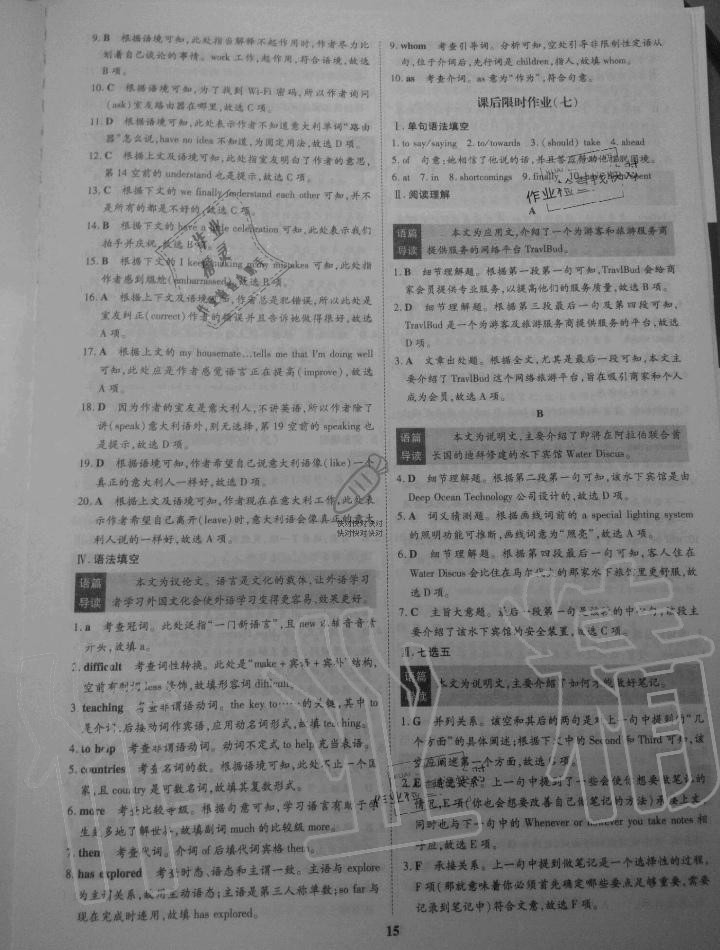 9. B 根据语境可知,此处指当解释不起作用时,作者尽力比
划着自己谈论的事情。work 工作,起作用,符合语境,故选
B 项。
10. C 根据语境可知,为了找到 Wi-Fi 密码,所以作者询问
(ask)室友路由器在哪里,故选 C 项。
11. D 根据语境可知,此处表示作者不知道意大利单词“路由
器”怎么说,have no idea 不知道,为固定用法,故选 D 项。
12. C 根据上文及语境可知,此处指室友明白了作者的意思,
第 14 空前的 understand 也是提示,故选 C 项。
13. C 根据下文的 we finally understand each other 可知,并不
是所有的都是不好的,故选 C 项。
14. B 根据下文的 have a little celebration 可知,此处表示我们
拍手并庆祝,故选 B 项。
15. B 根据下文的 I keep making many mistakes 可知,此处指
作者感到尴尬(embarrassed),故选 B 项。
16. A 根据上下文及语境可知,作者总是犯错误,所以此处是
室友纠正(correct)作者的错误并且告诉她做得很好,故选
A 项。
17. A 根据上文的 my housemate…tells me that I'm doing well
可知,此处应是作者感觉语言正在提高(improve),故选
A 项。
18. D 因为作者的室友是意大利人,不讲英语,所以作者除了
讲(speak)意大利语外,别无选择,第 19 空前的 speaking 也
是提示,故选 D 项。
19. D 根据语境可知,作者希望自己说意大利语像(like)一个
真正的意大利人一样好,故选 D 项。
20. A 根据上文及语境可知,作者现在在意大利工作,此处表
示作者希望自己离开(leave)时,意大利语会像真正的意大
利人说的一样好,故选 A 项。
Ⅳ. 语法填空
语篇导读 本文为议论文。语言是文化的载体,让外语学习
者学习外国文化会使外语学习变得更容易,效果更好。
1. a 考查冠词。此处泛指“一门新语言”,且 new 以辅音音素
开头,故填 a。
2. difficult 考查词性转换。此处是“make + 宾语 + 宾补”结构,
空前有副词 less 修饰,故填形容词 difficult。
3. teaching 考查非谓语动词。the key to……的关键,其中 to
是介词,后接动词作宾语,应用动名词形式,故填 teaching。
4. to help 考查非谓语动词。动词不定式 to help 充当表语。
5. countries 考查名词的数。根据语境可知,此处不止一个国
家,且 country 是可数名词,故填其复数形式。
6. more 考查比较等级。根据句意可知,学习语言有助于学
生更多地了解世界,故填副词 much 的比较级 more。
7. them 考查代词。介词 of 后填代词宾格 them。
8. has explored 考查时态、语态和主谓一致。主语与 explore
为主动关系,故用主动语态;主语是第三人称单数;so far 与
现在完成时连用,故填 has explored。
9. whom 考查引导词。分析可知,空处引导非限制性定语从
句,位于介词后,先行词是 children,指人,故填 whom。
10. as 考查介词。as 意为“作为”,符合句意。
课后限时作业(七)
Ⅰ. 单句语法填空
1. to say/saying 2. to/towards 3. (should) take 4. ahead
5. of 句意:她相信了他说的话,并且答应帮助他摆脱困境。
6. at 7. in 8. shortcomings 9. finally
Ⅱ. 阅读理解
A
语篇导读 本文为应用文,介绍了一个为游客和旅游服务商
提供服务的网络平台 TravlBud。
1. B 细节理解题。根据第一段第一句可知,TravlBud 会给商
家会员提供专业服务,以提高他们的服务质量,故选 B 项。
2. D 细节理解题。根据第三段最后一句及第四段可知,
TravlBud 是一个为游客及旅游服务商提供服务的平台,故选
D 项。
3. A 文章出处题。根据全文,尤其是最后一段可知,本文主
要介绍了 TravlBud 这个网络旅游平台,旨在吸引商家和个人
成为会员,故选 A 项。
B
语篇导读 本文为说明文,主要介绍了即将在阿拉伯联合酋
长国的迪拜修建的水下宾馆 Water Discus。
4. D 细节理解题。根据第二段第一句可知,该水下宾馆是由
Deep Ocean Technology 公司设计的,故选 D 项。
5. A 词义猜测题。根据画线词前的 a special lighting system
的照明功能可推断,画线词意为“照亮”,故选 A 项。
6. D 细节理解题。根据第五段第一句可知,客人住在
Water Discus 会比住在马尔代夫的那家水下旅馆里更舒服,故
选 D 项。
7. C 主旨大意题。最后一段第一句是该段的中心句,该段主
要介绍了该水下宾馆的安全装置,故选 C 项。
Ⅲ. 七选五
语篇导读 本文为说明文,主要介绍了如何才能做好笔记。
1. G 并列关系。该空和其后的两句是对上一句中提到的“几
个方面”的具体阐述;根据下文中的 Second and Third 可知,该
空应阐述第一个方面,故选 G 项。
2. E 递进关系。上一句中提到了一些会使你想要做笔记的
情况,E 项(你也会想要改善自己做笔记的方法)承接上文,
同时也与下一句中的 Whenever or however you take notes 相
呼应,故选 E 项。
3. F 承接关系。上一句中提到做笔记是一个选择性的过程,
F 项(那就意味着你必须首先确定哪些要点足够重要,需要
记录到笔记中)符合文意,故选 F 项。
快对快对快对
快对快对快对
15